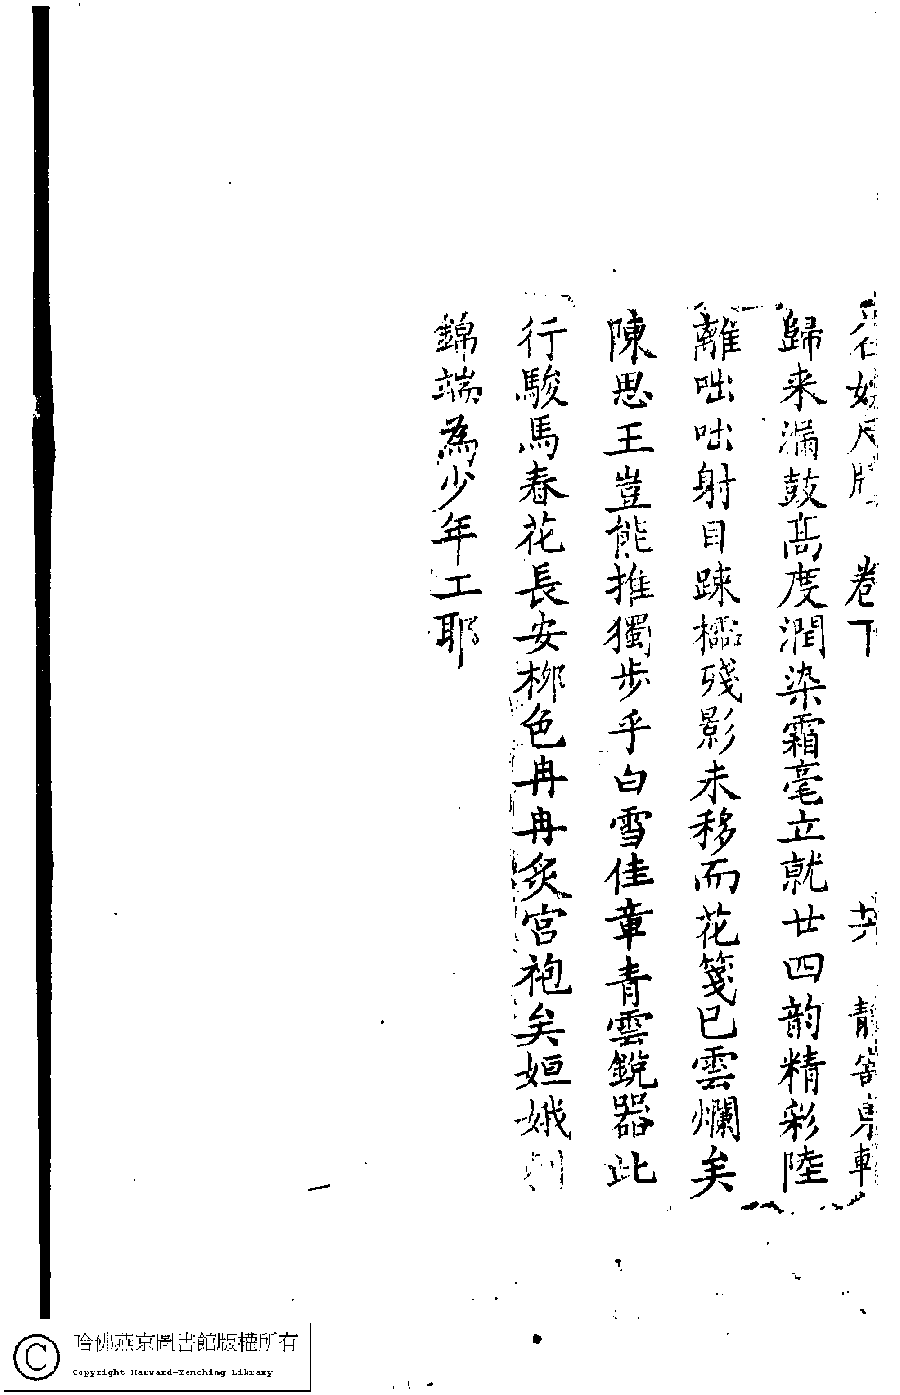 尺牘 卷下 共 靜寄東軒
歸来漏鼓髙度潤染霜毫立就廿四韵精彩陸
離咄咄射目踈櫺殘影未移而花箋已雲爛矣
陳思王豈能推獨步乎白雪佳章青雲銳器此
行駿馬春花長安栁色冉冉炙宮袍矣姮娥
錦端為少年工耶
哈佛燕京圖書館版權所有
Copyright Harvard-Yenching Library